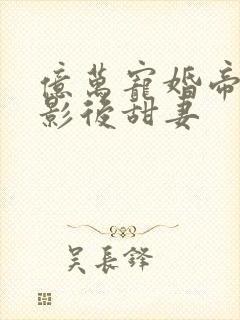 億萬寵婚帝
影後甜妻
吴長鋒